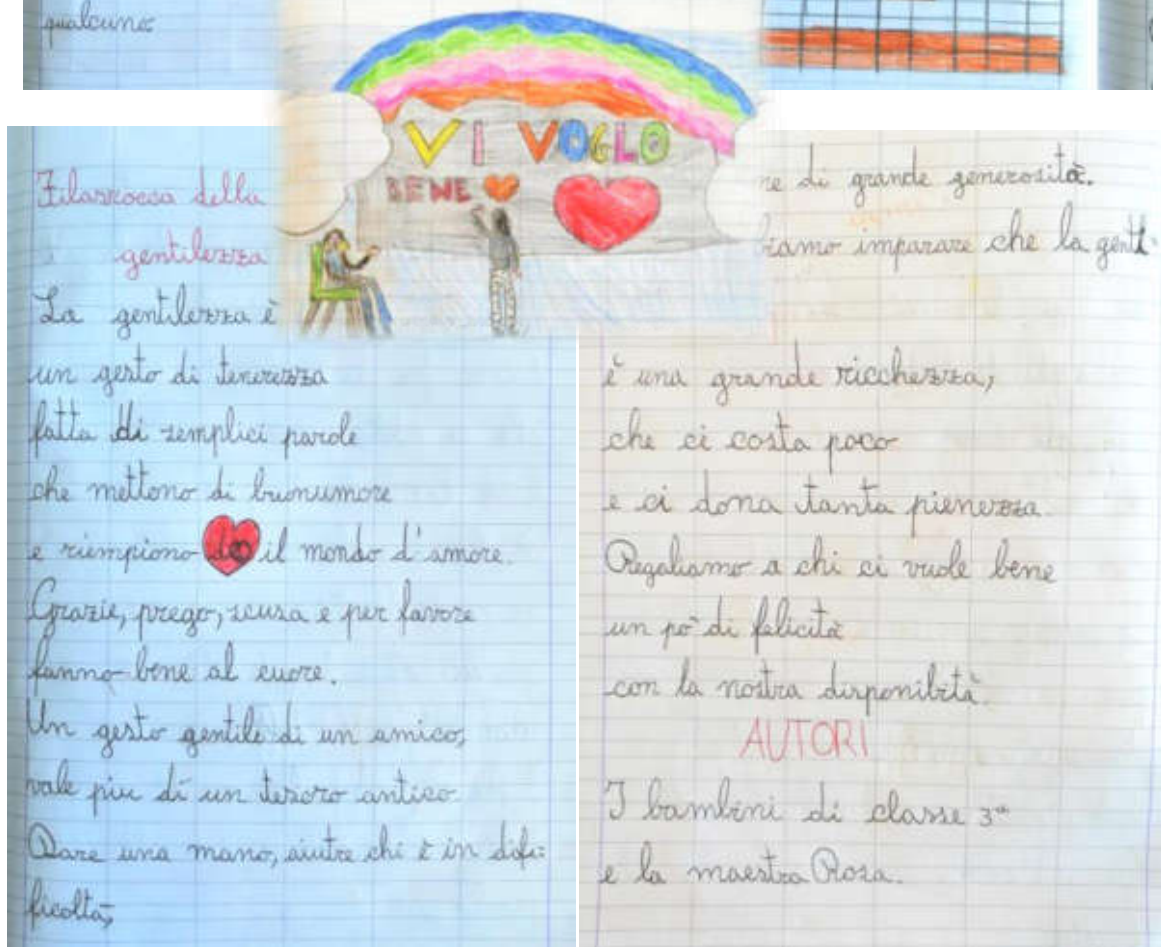 qualcuno:
VI VOGLO
BENE
Filastrocca della
gentilezza
La gentilezza è
un gesto di tenerezza
fatta di semplici parole
che mettono di buonumore
e riempiono il mondo d'amore.
Grazie, prego, scusa e per favore
fanno bene al cuore.
Un gesto gentile di un amico,
vale piu di un tesoro antico.
Dare una mano, aiutre chi è in dif:
ficoltà,
ne di grande generosità.
biamo imparare che la genti
è una grande ricchezza,
che ci costa poco
e ci dona tanta pienezza.
Regaliamo a chi ci vuole bene
un po' di felicità
con la nostra disponibità.
AUTORI
I bambini di classe 3ª
e la maestra Rosa.